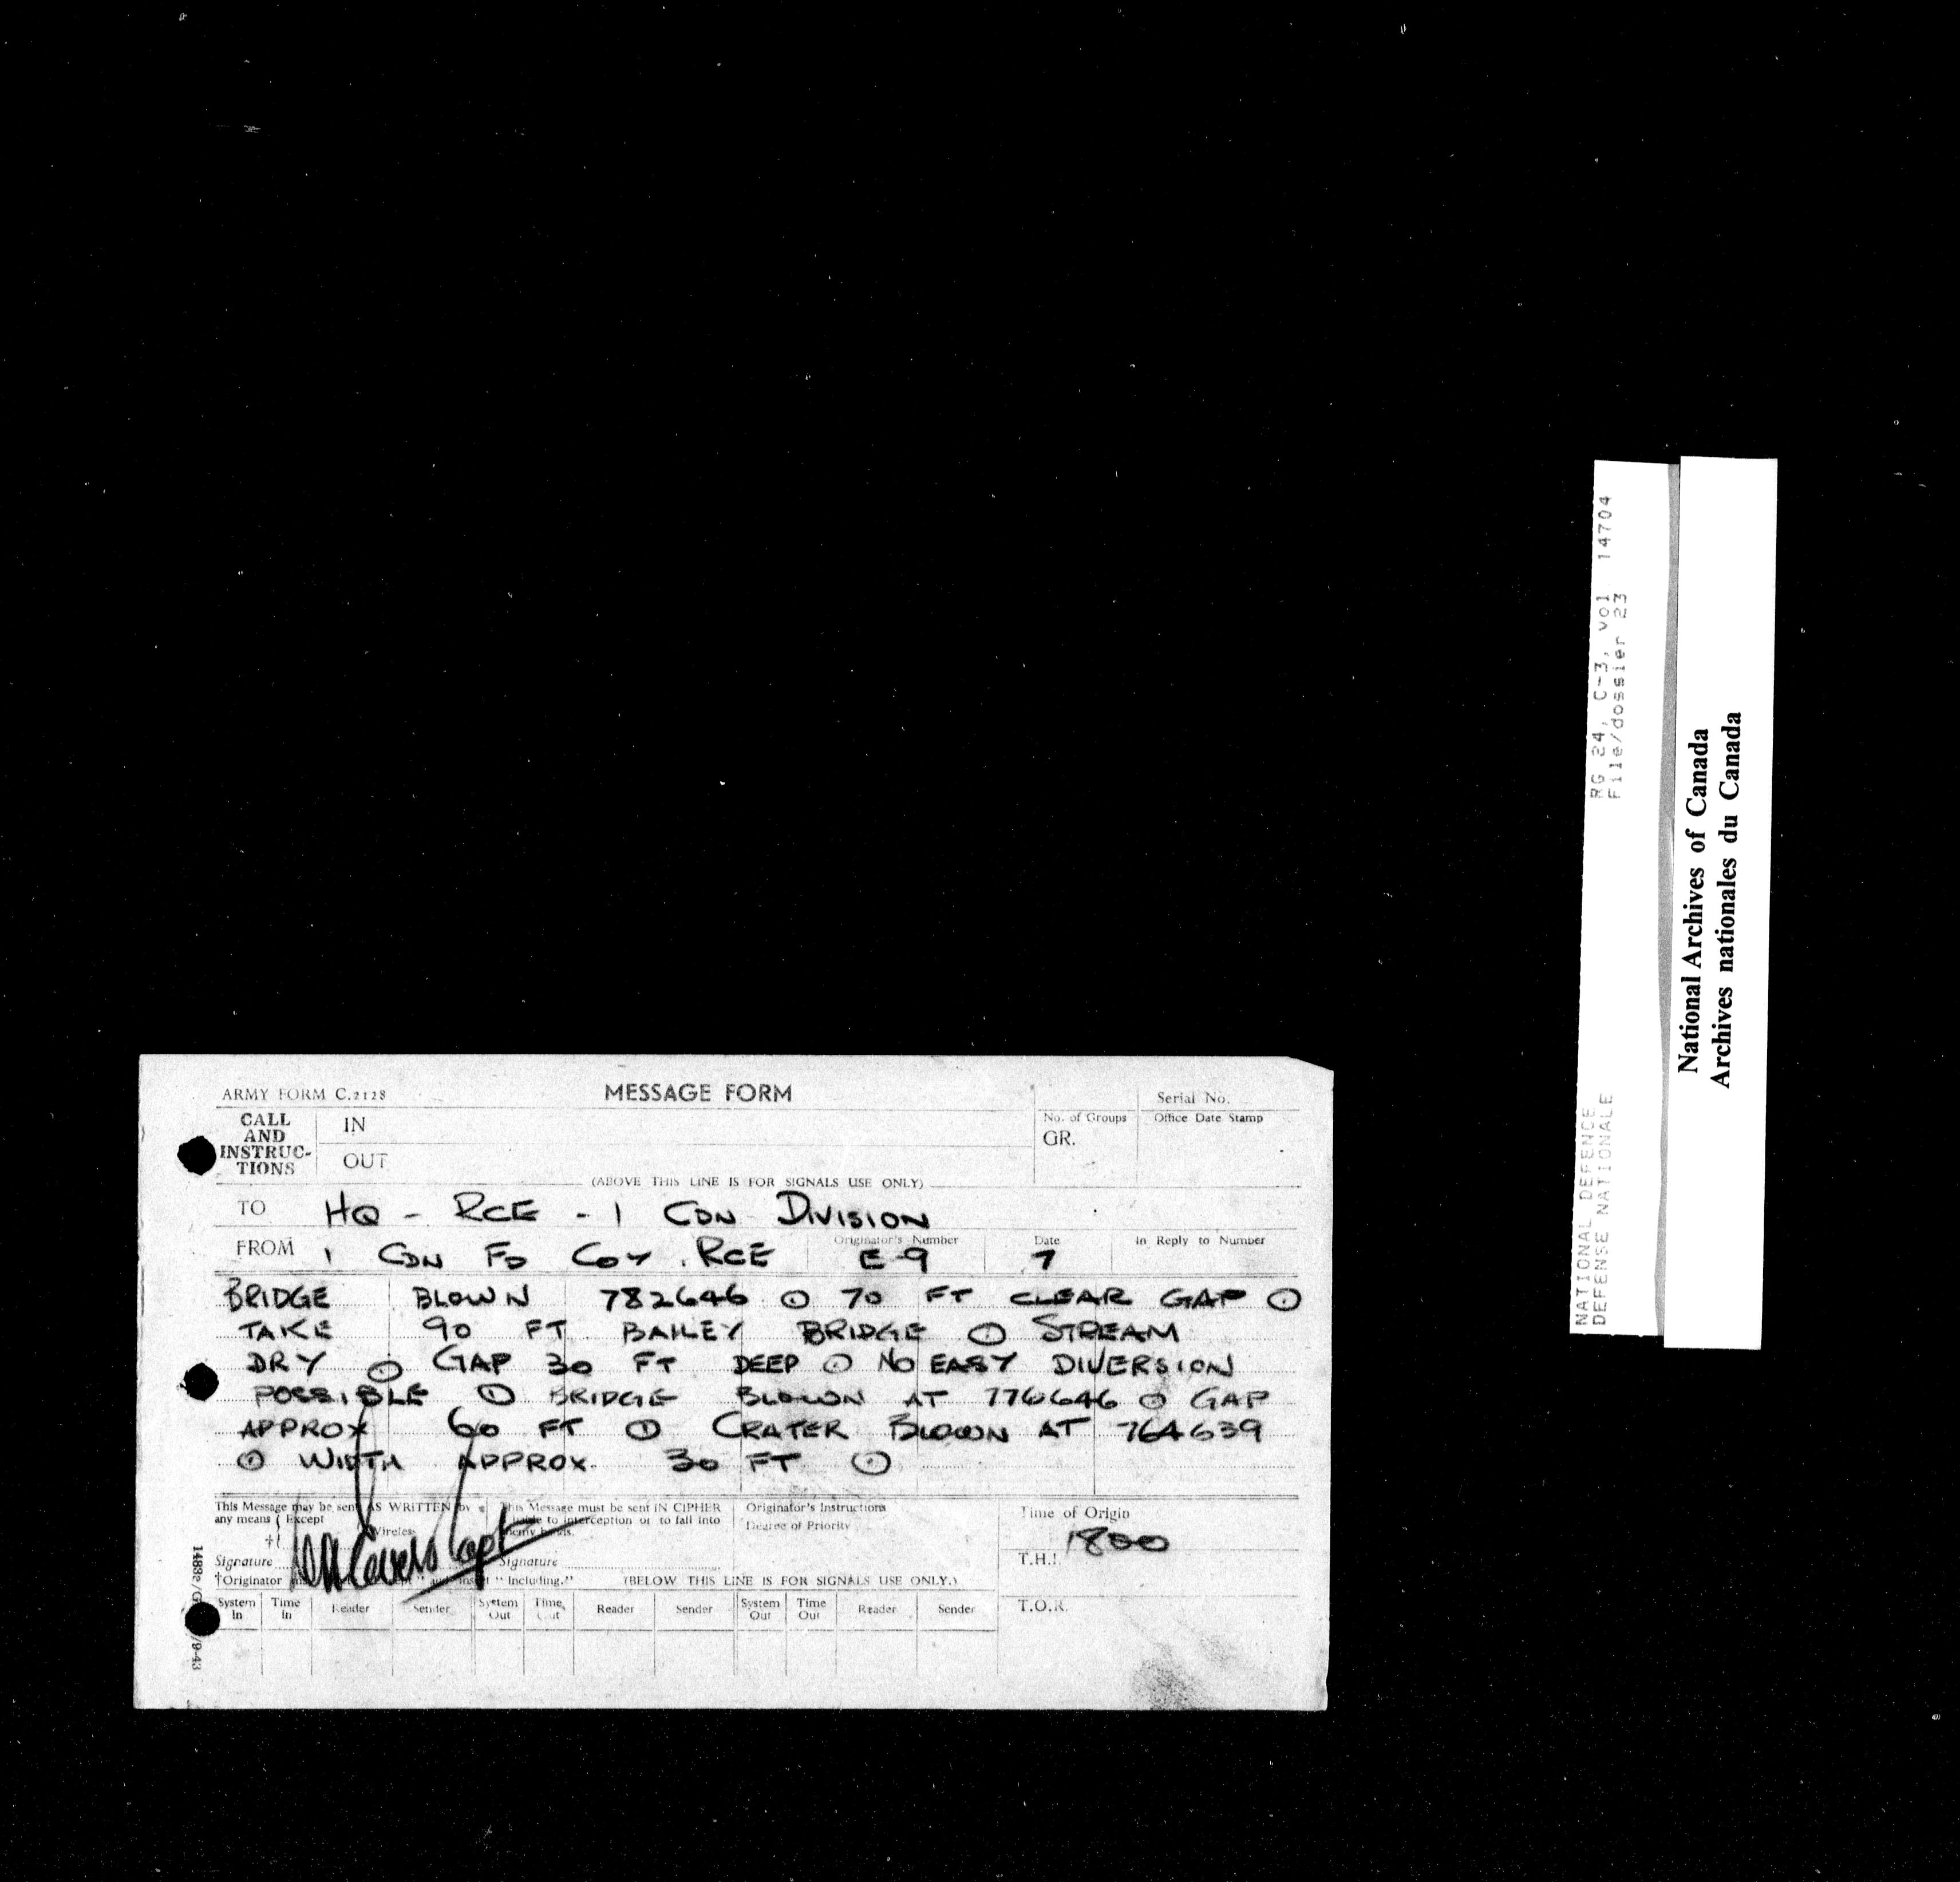 ARMY FORM C.2128
MESSAGE FORM
Serial No.
CALL AND INSTRUC-TIONS
IN
OUT
No. of Groups
GR.
Office Date Stamp
(ABOVE THIS LINE IS FOR SIGNALS USE ONLY)
TO HQ - RCE - 1 CDN DIVISION
FROM 1 CDN FD COY. RCE
Originator's Number E-9
Date 7
In Reply to Number
BRIDGE BLOWN 782646 ⊙ 70 FT CLEAR GAP ⊙
TAKE 90 FT BAILEY BRIDGE ⊙ STREAM
DRY ⊙ GAP 30 FT DEEP ⊙ NO EASY DIVERSION
POSSIBLE ⊙ BRIDGE BLOWN AT 776646 ⊙ GAP
APPROX 60 FT ⊙ CRATER BLOWN AT 764639
⊙ WIDTH APPROX. 30 FT ⊙
This Message may be sent AS WRITTEN by
any means (Except
Wireless
Signature
†Originator
This Message must be sent IN CIPHER
to interception or to fall into
Signature
"Including."
Capt
Originator's Instructions
Degree of Priority
(BELOW THIS LINE IS FOR SIGNALS USE ONLY.)
Time of Origin
1800
T.H.I.
T.O.R.
System In
Time In
Reader
Sender
System Out
Time Out
Reader
Sender
System Out
Time Out
Reader
Sender
14882/G
/9-43
RG 24, C-3, vol 14704
File/dossier 23
NATIONAL DEFENCE
DEFENSE NATIONALE
National Archives of Canada
Archives nationales du Canada